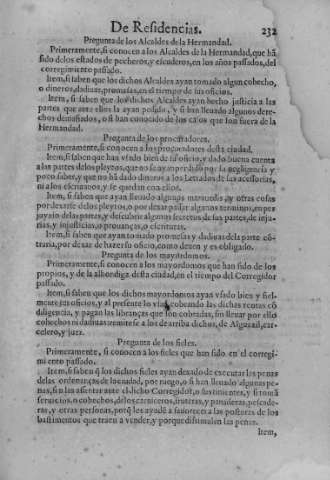 De Residencias. 232
Pregunta de los Alcaldes de la Hermandad.
Primeramente, si conocen a los Alcaldes de la Hermandad, que hã
sido delos estados de pecheros, y escuderos, en los años passados, del
corregimiento passado.
Item, si saben que los dichos Alcaldes ayan tomado algun cohecho,
o dineros, dadiuas, promesas, en el tiempo de sus oficios.
Item, si saben que los dichos Alcaldes ayan hecho justicia a las
partes que ante ellos la ayan pedido, y si han lleuado algunos dere-
chos demasiados, o si han conocido de los casos que son fuera de la
Hermandad.
Pregunta de los procuradores.
Primeramente, si conocen a los procuradores desta ciudad.
Item, si saben que han vsado bien de su oficio, y dado buena cuenta
a las partes delos pleytos, que no se ayan perdido por su negligencia y
poco saber, y que no hã dado dineros a los Letrados de las accessorias,
ni a los escriuanos, y se quedan con ellos.
Item, si saben que ayan lleuado algunas marauedis, y otras cosas
por dexarse delos pleytos, o por dexar passar algunos terminos, en per
juyzio dela partes, y descubrir algunos secretos de sus partes, de inju-
rias, y injusticias, o prouanças, o escrituras.
Item, si saben que ayan tomado promesas y dadiuas dela parte cõ-
traria, por dexar de hazer su oficio, como deuen y es obligado.
Pregunta de los mayordomos.
Primeramente, si conocen a los mayordomos que han sido de los
propios, y de la alhondiga desta ciudad, en el tiempo del Corregidor
passado.
Item, si saben que los dichos mayordomos ayan vsado bien y fiel-
mente sus oficios, y al presente lo vsan, cobrando las dichas rentas cõ
diligencia, y pagan las libranças que son cobradas, sin lleuar por ello
cohechos ni dadiuas remitese a los de arriba dichos, de Alguazil, car-
celero, y juez.
Pregunta de los fieles.
Primeramente, si conocen a los fieles que han sido en el corregi-
miento passado.
Item, si saben q̃ los dichos fieles ayan dexado de executar las penas
delas ordenanças de la ciudad, por ruego, o si han lleuado algunas pe-
nas, sin las assentar ante el dicho Corregidor, o sus tinientes, y si tomã
seruicios, o cohechos, delos carniceros, fruteras, y panaderas, pescade-
ras, y otras personas, porq̃ les ayudē a fauorecer a las posturas de los
bastimentos que traen a vender, y porque dissimulen las penas.
Item,